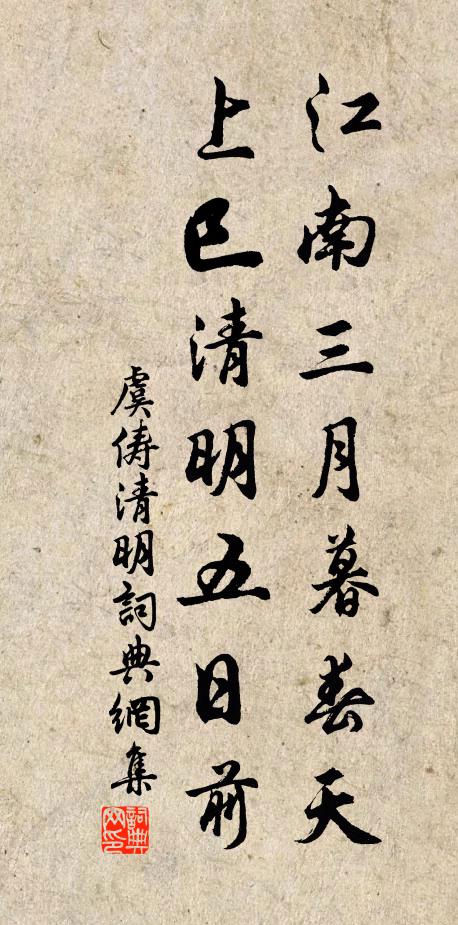 江南三月暮春天
上巳清明五日前
虞俦清明詞典網集
詞典网印